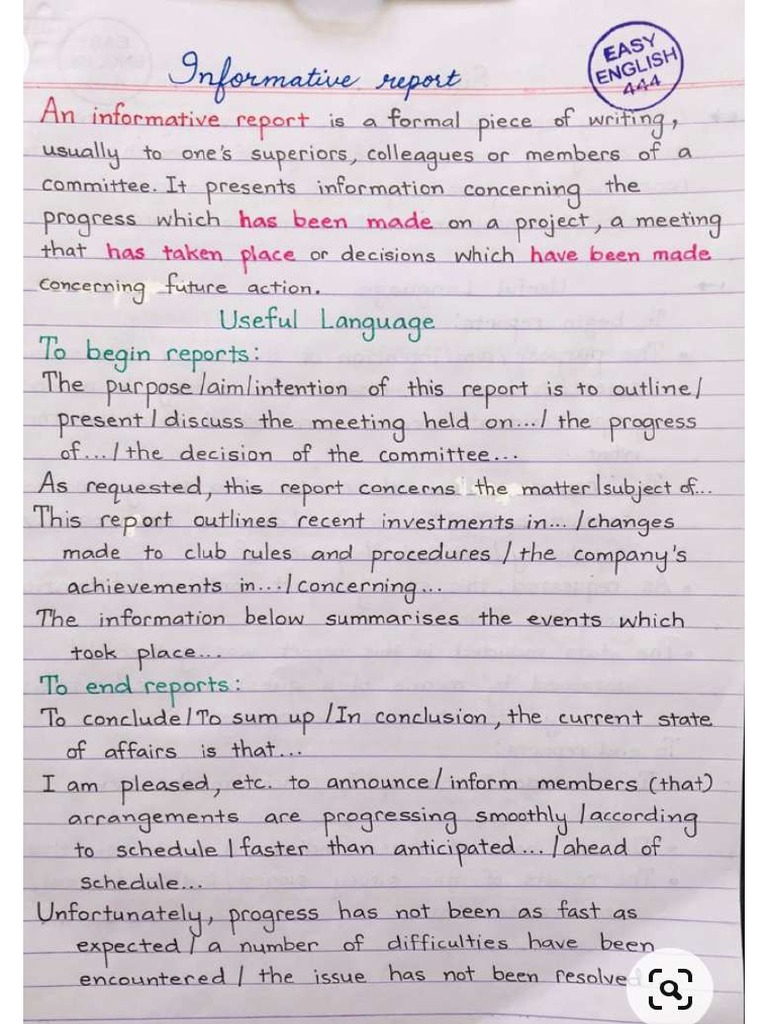 Informative report
EASY
ENGLISH
444
An informative report is a formal piece of writing,
usually to one's superiors, colleagues or members of a
committee. It presents information concerning the
progress which has been made on a project, a meeting
that has taken place or decisions which have been made
concerning future action.
Useful Language
To begin reports:
The purpose/aim/intention of this report is to outline/
present/discuss the meeting held on.../ the progress
of.../ the decision of the committee...
As requested, this report concerns the matter/subject of...
This report outlines recent investments in... /changes
made to club rules and procedures / the company's
achievements in.../concerning...
The information below summarises the events which
took place...
To end reports:
To conclude/To sum up /In conclusion, the current state
of affairs is that...
I am pleased, etc. to announce/inform members (that)
arrangements are progressing smoothly /according
to schedule / faster than anticipated... /ahead of
schedule...
Unfortunately, progress has not been as fast as
expected / a number of difficulties have been
encountered / the issue has not been resolved